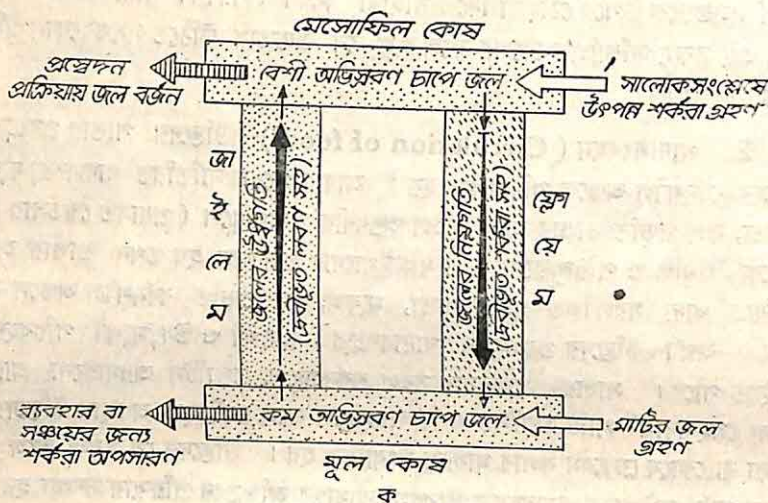 মেসোফিল কোষ
প্রস্বেদন
প্রক্রিয়ায় জল বর্জন
বেশী অভিস্রবণ চাপে জল
সালোকসংশ্লেষে
উৎপন্ন শর্করা গ্রহণ
জা
ই
লে
ম
জলের ঊর্ধ্বগতি
(দ্রবীভূত লবণ সহ)
জলের নিম্নগতি
(দ্রবীভূত শর্করা সহ)
ফ্লো
য়ে
ম
ব্যবহার বা
সঞ্চয়ের জন্য
শর্করা অপসারণ
কম অভিস্রবণ চাপে জল
মাটির জল
গ্রহণ
মূল কোষ
ক